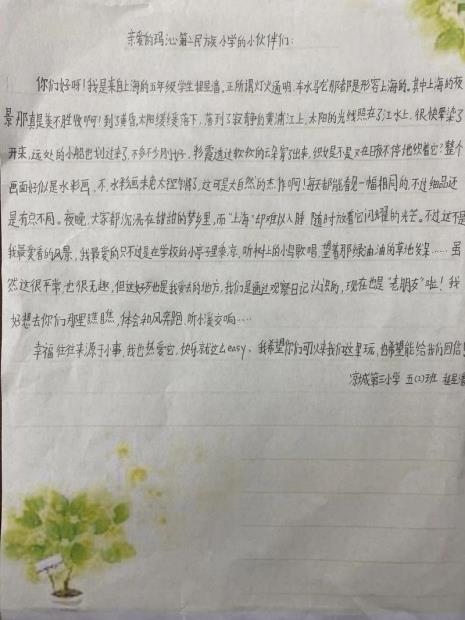 亲爱的玛沁第二民族小学的小伙伴们：
你们好呀！我是来自上海的五年级学生赵昱潼，正所谓灯火通明，车水马龙那都是形容上海的。其中上海的夜
景那真是美不胜收啊！到了黄昏，太阳缓缓落下，落到了寂静的黄浦江上，太阳的光线照在了江水上，很快晕染了
开来，远处的小船也划过来了，不多不少刚刚好。彩霞透过软软的云朵冒了出来，织女是不是又在日夜不停地织着它？整个
画面好似是水彩画，不，水彩画未免太轻薄了，这可是大自然的杰作啊！每天都能看见一幅相同的，不过细品还
是有点不同。夜晚，大家都沉浸在甜甜的梦乡里，而“上海”却难以入睡，随时放着它闪耀的光芒。不过这不是
我最爱看的风景，我最爱的只不过是在学校的小亭子里乘凉，听树上的小鸟歌唱，望着那绿油油的草地发呆……虽
然这很平常，也很无趣，但这好歹也是我爱去的地方，我们是通过观察日记认识的，现在也是“老朋友”啦！我
好想去你们那里瞧瞧，体会和风奔跑，听小溪交响……
幸福往往来源于小事，我也热爱它，快乐就这么easy。我希望你们可以来我们这里玩，也希望能给我们回信！
凉城第三小学 五(2)班 赵昱潼